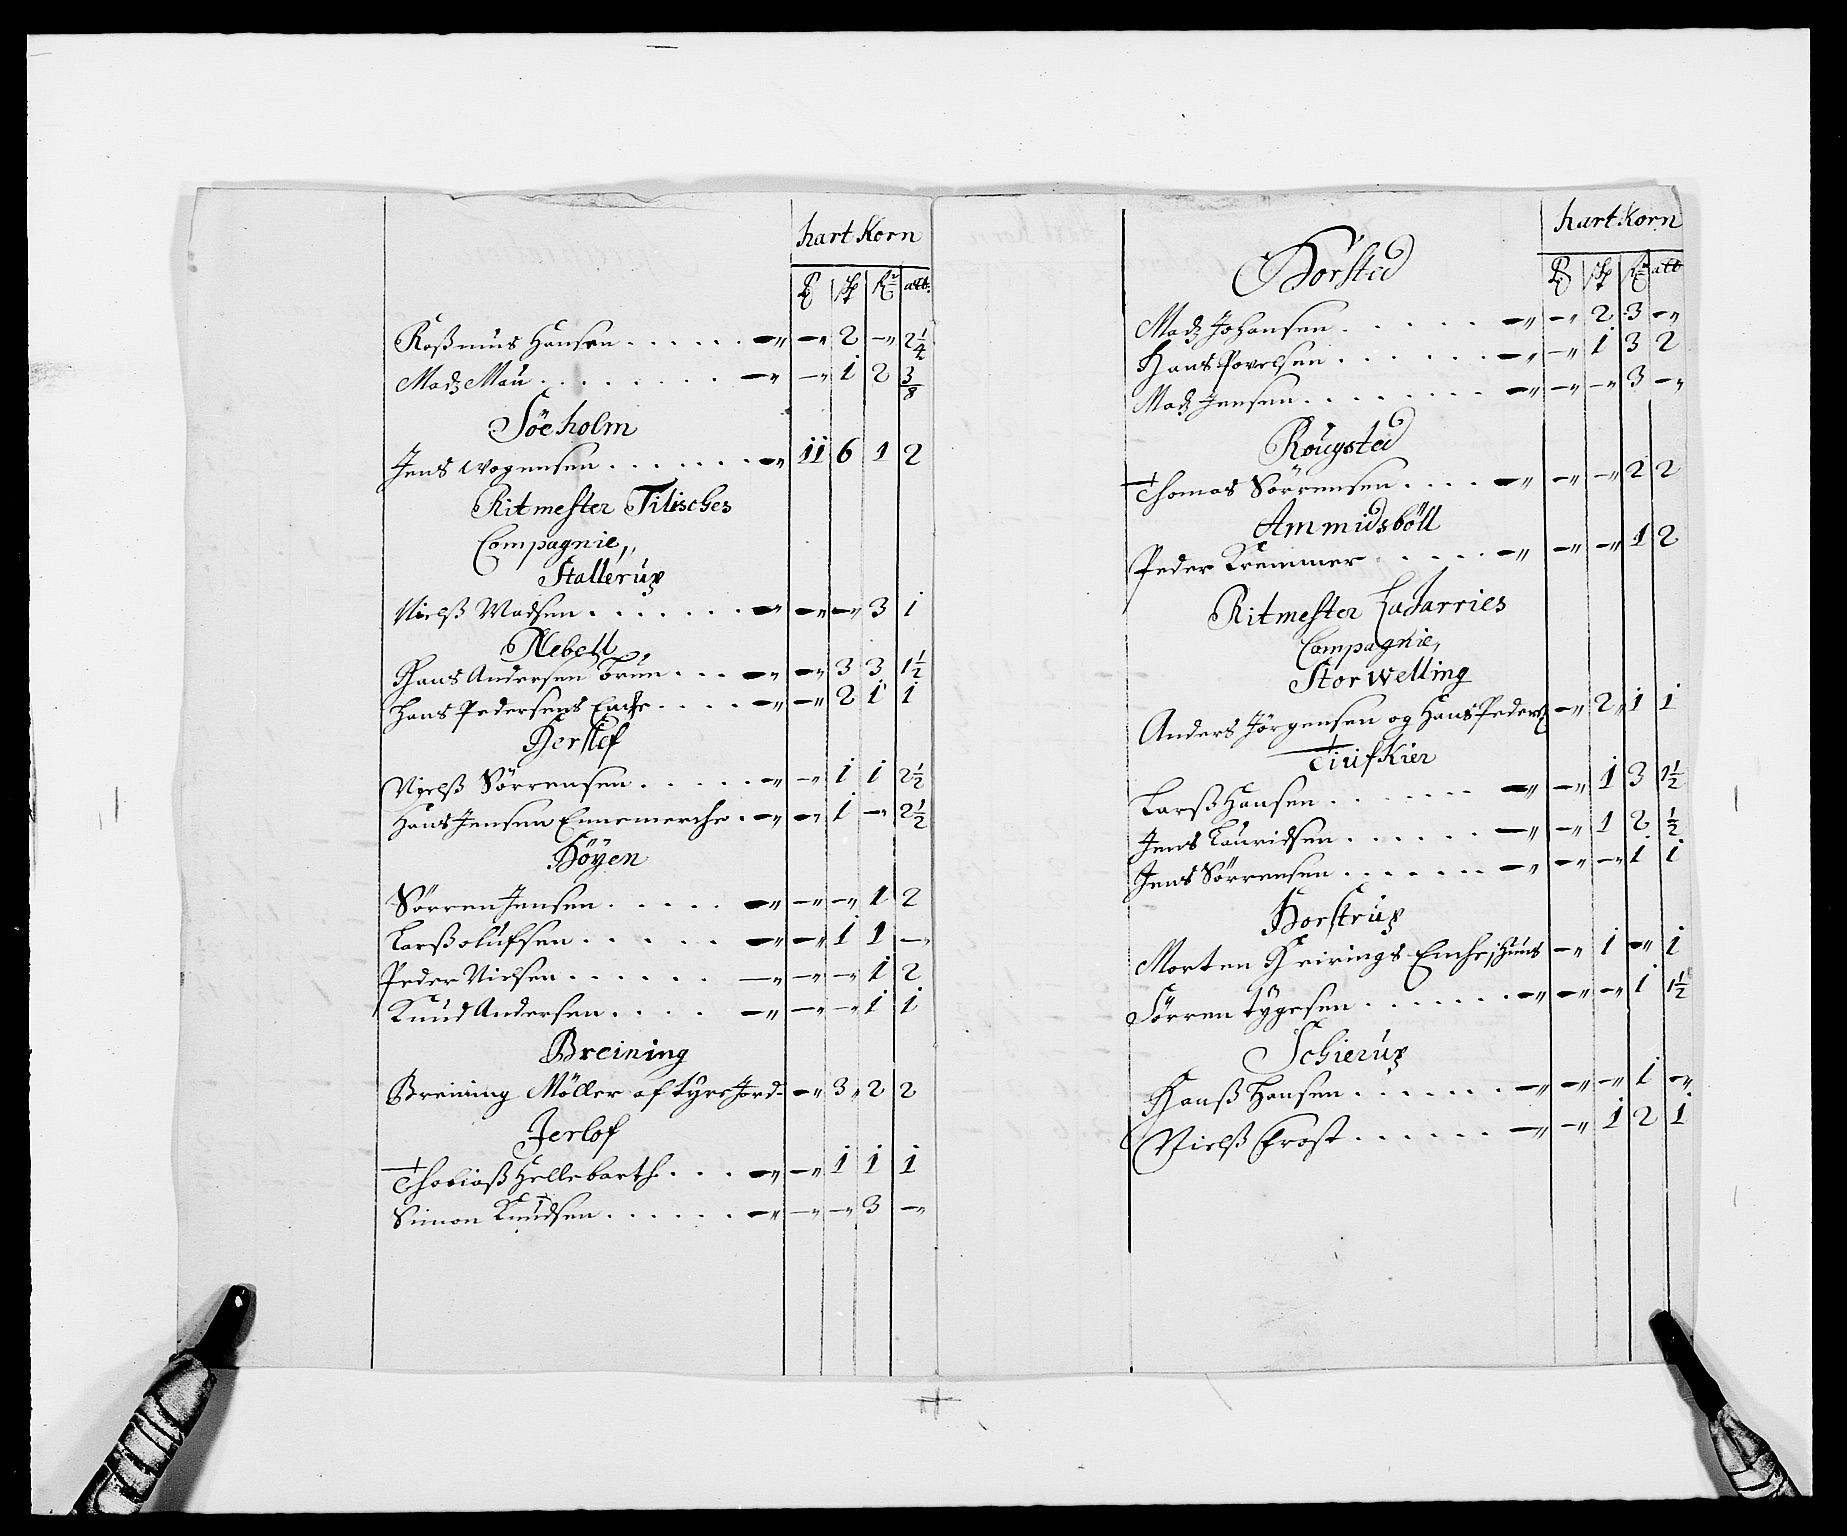 hart Korn
Td Skp Fr alb.
Raßmus Hansen . . . . . . —„ —„ 2 —„ 2¼
Madz Mau . . . . . . . . —„ —„ 1 2 3/8
Söeholm
Jens Wogensen . . . . . . . —„ 11 6 1 2
Ritmester Titisches
Compagnie,,
Stallerup
Nielß Madsen . . . . . . . —„ —„ —„ 3 1
Nebell
Hans Andersen Brun . . . —„ —„ 3 3 1½
Hans Pedersens Enche . . . . —„ —„ 2 1 1
Herslef
Nielß Sörrensen . . . . . —„ —„ 1 1 2½
Hans Jensen Ennemerche . —„ —„ 1 —„ 2½
Höyen
Sörren Jensen . . . . . —„ —„ —„ 1 2
Larß olufsen . . . . . —„ —„ 1 1 —„
Peder Nielsen . . . . . . —„ —„ —„ 1 2
Knud Andersen . . . . —„ —„ —„ 1 1
Breining
Breining Möller af tyre Jord —„ 3„ 2 2
Jerlof
Thobiaß Hellebarth . . . —„ —„ 1 1 1
Simon Knudsen . . . . . . —„ —„ —„ 3 —„
hart Korn
Td Skp Fr alb
Horsted
Madz Johansen . . . . . —„ —„ 2 3 —„
Hans Povelsen . . . . . . —„ —„ 1 3 2
Madz Jensen . . . . . . . . —„ —„ —„ 3 —„
Rougsted
Thomas Sörrensen . . . . —„ —„ —„ 2 2
Ammidsböll
Peder Kremmer . . . . . —„ —„ —„ 1 2
Ritmester Ladarries
Compagnie,
Stor Welling
Anders Jörgensen og Hans Peders. —„ 2„ 1 1
Tiufkier
Larß Hansen . . . . . . . —„ —„ 1 3 1½
Jens Lauridsen . . . . . . —„ —„ 1 2 ½
Jens Sörrensen . . . . . . . —„ —„ —„ 1 1
Horstrup
Morten Heirings Enche, Huus —„ 1 —„ 1
Sörren Tygesen . . . . . . . —„ —„ —„ 1 1½
Schierup
Hanß Hansen . . . . . . —„ —„ —„ 1 —„
Nielß Frost . . . . . . —„ —„ 1 2 1